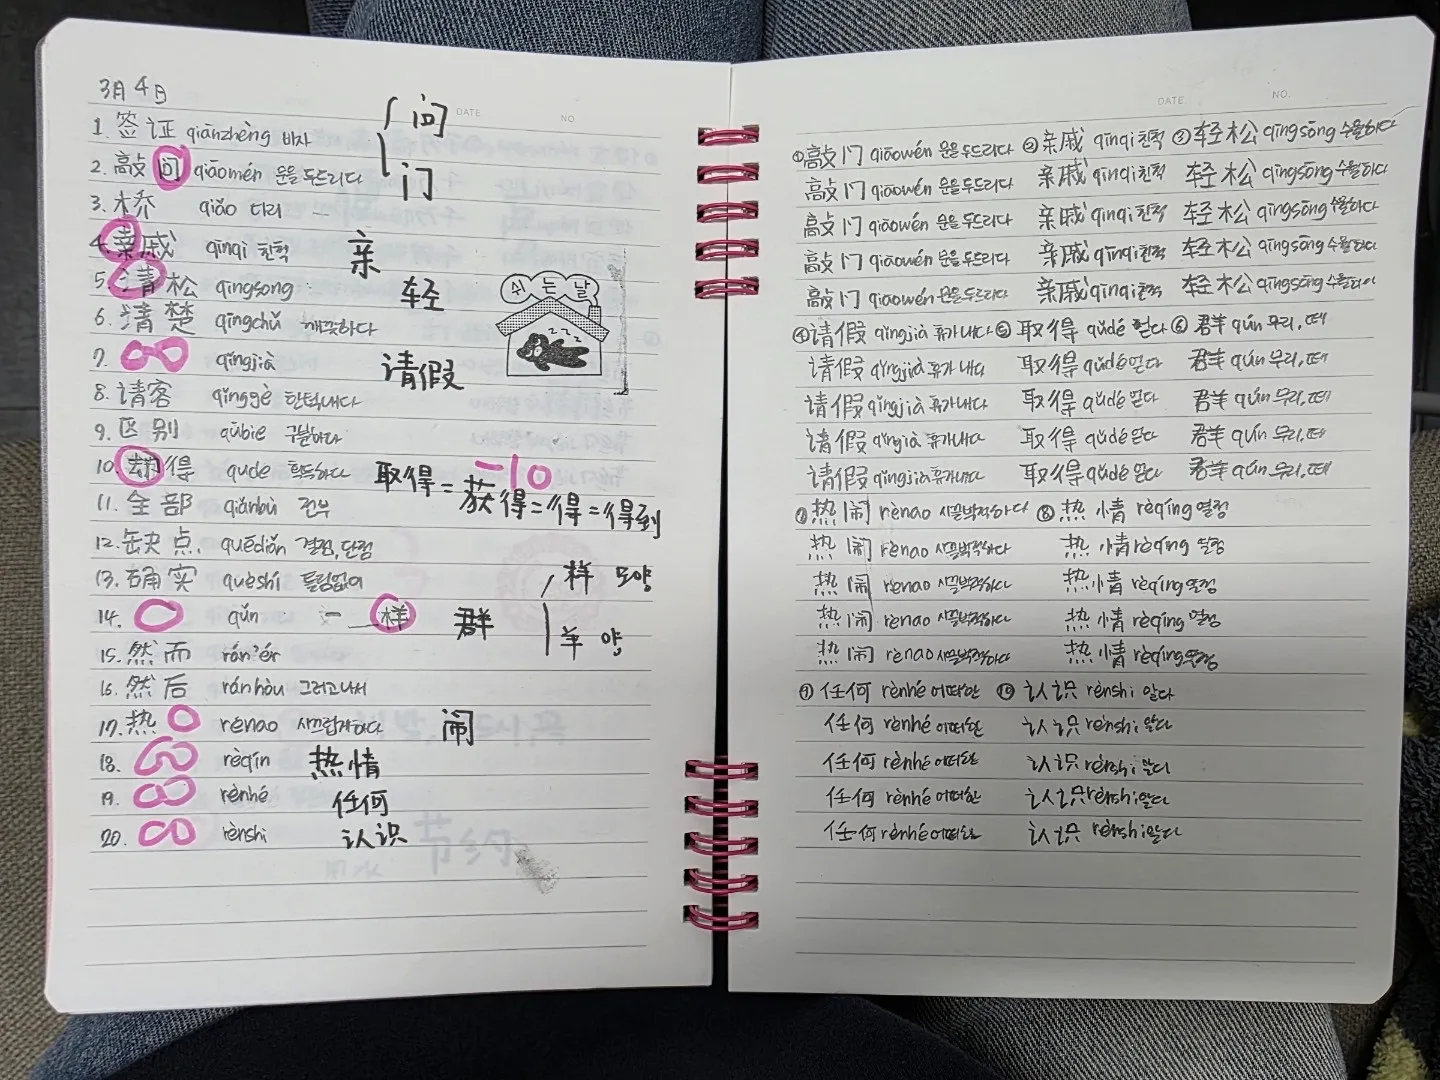 3月 4日
DATE. NO.
1. 签证 qiānzhèng 비자
问
2. 敲问 qiāomén 문을 두드리다
门
3. 桥 qiáo 다리
4. 亲戚 qīnqi 친척 亲
5. 清松 qīngsong 轻
6. 清楚 qīngchǔ 깨끗하다
쉬는날
zzz
7. qǐngjià 请假
8. 请客 qǐnggè 한턱내다
9. 区别 qūbié 구분하다
10. 得 qude 획득하다 取得 = 获得 = 〃得 = 〃得到
-10
11. 全部 quánbù 전부
12. 缺点 quēdiǎn 결점, 단점
13. 确实 quèshí 틀림없이
样 모양
14. qún 样 群
羊 양
15. 然而 rán'ér
16. 然后 ránhòu 그러고나서
17. 热 rènao 시끄럽게하다 闹
18. rèqín 热情
19. rènhé 任何
20. rènshi 认识
DATE. NO.
① 敲门 qiāowén 문을 두드리다 ② 亲戚 qīnqi 친척 ③ 轻松 qīngsōng 수월하다
敲门 qiāowén 문을 두드리다 亲戚 qīnqi 친척 轻松 qīngsōng 수월하다
敲门 qiāowén 문을 두드리다 亲戚 qīnqi 친척 轻松 qīngsōng 수월하다
敲门 qiāowén 문을 두드리다 亲戚 qīnqi 친척 轻松 qīngsōng 수월하다
敲门 qiāowén 문을 두드리다 亲戚 qīnqi 친척 轻松 qīngsōng 수월하다
④ 请假 qǐngjià 휴가내다 ⑤ 取得 qǔdé 얻다 ⑥ 群 qún 무리, 떼
请假 qǐngjià 휴가내다 取得 qǔdé 얻다 群 qún 무리, 떼
请假 qǐngjià 휴가내다 取得 qǔdé 얻다 群 qún 무리, 떼
请假 qǐngjià 휴가내다 取得 qǔdé 얻다 群 qún 무리, 떼
请假 qǐngjià 휴가내다 取得 qǔdé 얻다 群 qún 무리, 떼
⑦ 热闹 rènao 시끌벅적하다 ⑧ 热情 rèqíng 열정
热闹 rènao 시끌벅적하다 热情 rèqíng 열정
热闹 rènao 시끌벅적하다 热情 rèqíng 열정
热闹 rènao 시끌벅적하다 热情 rèqíng 열정
热闹 rènao 시끌벅적하다 热情 rèqíng 열정
⑨ 任何 rènhé 어떠한 ⑩ 认识 rènshi 알다
任何 rènhé 어떠한 认识 rènshi 알다
任何 rènhé 어떠한 认识 rènshi 알다
任何 rènhé 어떠한 认识 rènshi 알다
任何 rènhé 어떠한 认识 rènshi 알다